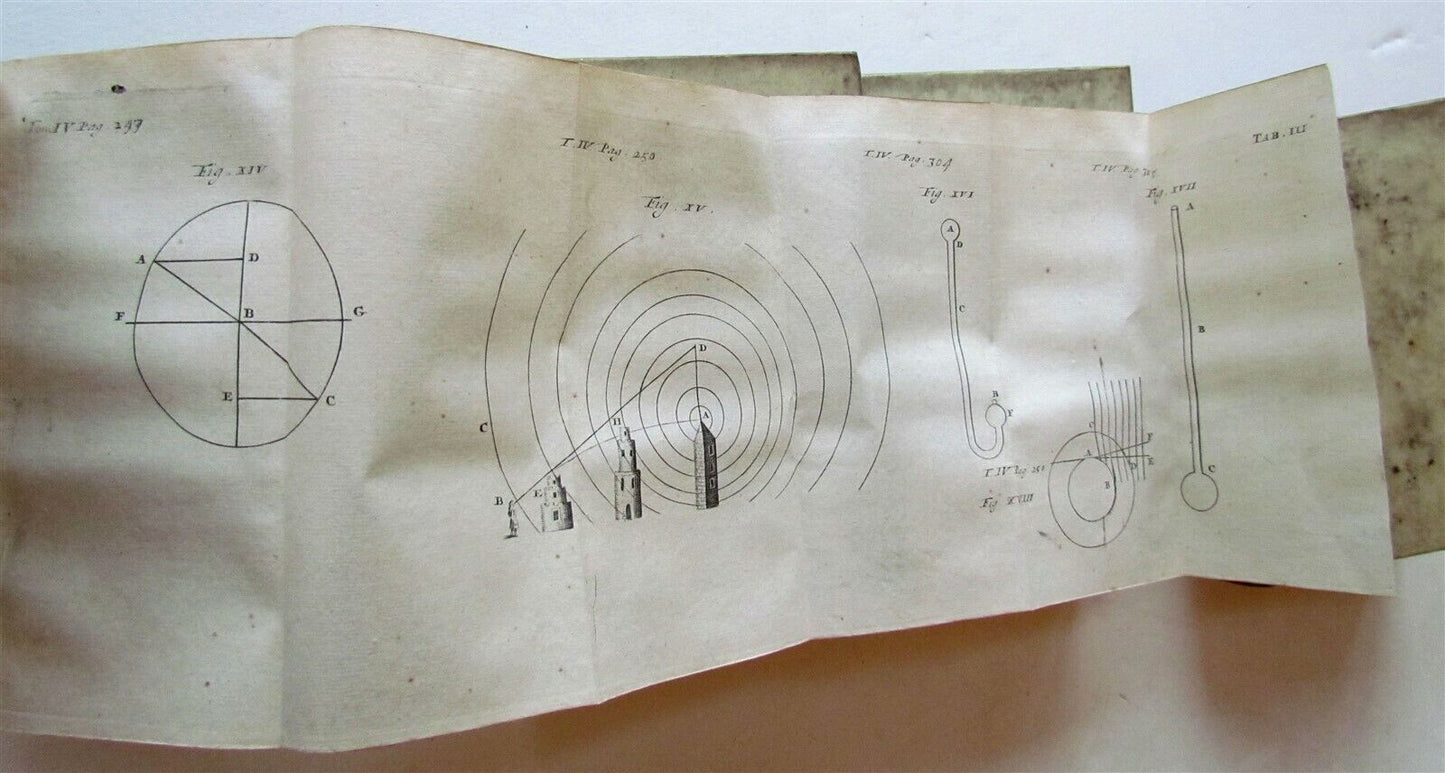 Tom IV Pag. 247
Fig. XIV
A
D
F
B
G
E
C
T. IV Pag. 250
Fig. XV.
D
A
H
C
B
E
T. IV Pag. 304
Fig. XVI
A
D
C
B
F
T. IV Pag.
Fig. XVII
A
B
C
T. IV Pag. 251
Fig. XVIII
C
F
A
D
E
B
TAB. III